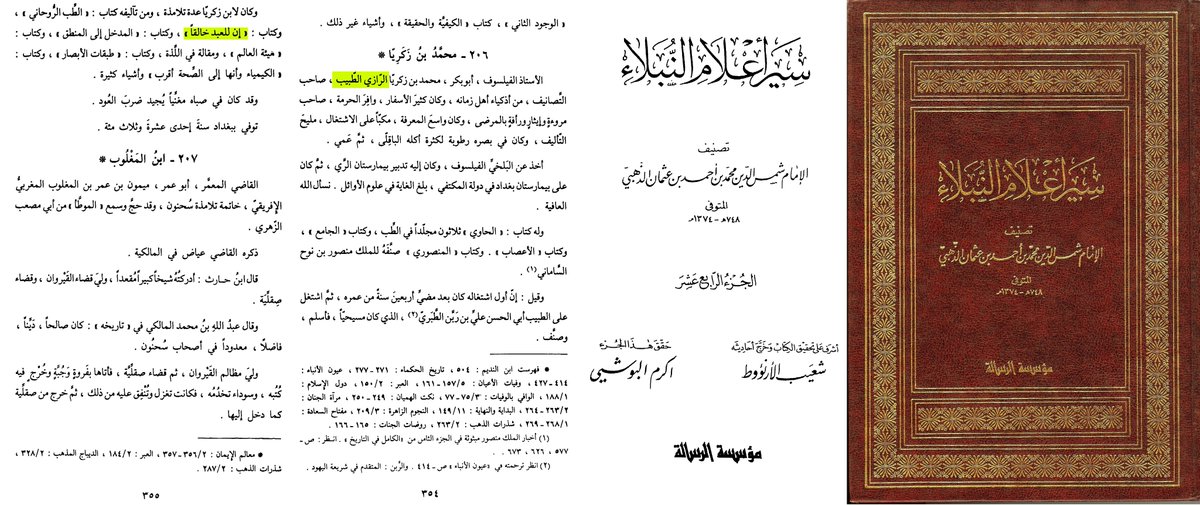 سير أعلام النبلاء
تصنيف
الإمام شمس الدين محمد بن أحمد بن عثمان الذهبي
المتوفى
٧٤٨هـ - ١٣٧٤م
مؤسسة الرسالة
سير أعلام النبلاء
تصنيف
الإمام شمس الدين محمد بن أحمد بن عثمان الذهبي
المتوفى
٧٤٨هـ - ١٣٧٤م
الجزء الرابع عشر
أشرف على تحقيق الكتاب وخرج أحاديثه
شعيب الأرنؤوط
حقق هذا الجزء
أكرم البوشي
مؤسسة الرسالة
« الوجود الثاني » ، كتاب « الكيفيَّة والحقيقة » ، وأشياء غير ذلك .
٢٠٦ - محمَّدُ بنُ زَكَرِيّا *
الأستاذ الفيلسوف ، أبوبكر ، محمد بن زكريّا الرّازي الطَّبيب ، صاحب
التَّصانيف ، من أذكياء أهل زمانه ، وكان كثيرَ الأسفار ، وافِرَ الحرمة ، صاحب
مروءةٍ وإيثارٍ ورأفةٍ بالمرضى ، وكان واسعَ المعرفة ، مكبّاً على الاشتغال ، مليحَ
التَّأليف ، وكان في بصره رطوبة لكثرة أكله الباقِلَّى ، ثمَّ عَمي .
أخذ عن البَلخيِّ الفيلسوف ، وكان إليه تدبير بيمارستان الرَّي ، ثمَّ كان
على بيمارستان بغداد في دولة المكتفي ، بلغ الغاية في علوم الأوائل . نسأل الله
العافية .
وله كتاب : « الحاوي » ثلاثون مجلّداً في الطِّب ، وكتاب « الجامع » ،
وكتاب « الأعصاب » . وكتاب « المنصوري » صنَّفَهُ للملك منصور بن نوح
السَّاماني (١) .
وقيل : إنَّ أول اشتغاله كان بعد مضيِّ أربعينَ سنةً من عمره ، ثمَّ اشتغل
على الطبيب أبي الحسن عليّ بن رَبَّن الطَّبَريّ (٢) ، الذي كان مسيحيّاً ، فأسلم ،
وصنَّف .
* فهرست ابن النديم : ٥٠٤ ، تاريخ الحكماء : ٢٧١ - ٢٧٧ ، عيون الأنباء :
٤١٤ - ٤٢٧ ، وفيات الأعيان : ١٥٧/٥ - ١٦١ ، العبر : ١٥٠/٢ ، دول الإسلام :
١٨٨/١ ، الوافي بالوفيات : ٧٥/٣ - ٧٧ ، نكت الهميان : ٢٤٩ - ٢٥٠ ، مرآة الجنان :
٢٦٣/٢ - ٢٦٤ ، البداية والنهاية : ١٤٩/١١ ، النجوم الزاهرة : ٢٠٩/٣ ، مفتاح السعادة :
٢٦٨/١ - ٢٦٩ ، شذرات الذهب : ٢٦٣/٢ ، روضات الجنات : ١٦٥ - ١٦٦ .
(١) أخبار الملك منصور مبثوثة في الجزء الثامن من « الكامل في التاريخ » . انظر : ص -
٥٧٧ ، ٦٢٦ ، ٦٧٣ .
(٢) انظر ترجمته في « عيون الأنباء » ص - ٤١٤ . والرَّبن : المتقدم في شريعة اليهود .
٣٥٤
وكان لابن زكريّا عدة تلامذة ، ومن تآليفه كتاب : « الطِّب الرُّوحاني » ،
وكتاب : « إن للعبد خالقاً » ، وكتاب : « المدخل إلى المنطق » ، وكتاب :
« هيئة العالم » ، ومقالة في اللّذة ، وكتاب : « طبقات الأبصار » ، وكتاب :
« الكيمياء وأنها إلى الصِّحة أقرب » وأشياء كثيرة .
وقد كان في صباه مغنّياً يُجيد ضربَ العُود .
توفي ببغداد سنةَ إحدى عشرةَ وثلاث مئة .
٢٠٧ - ابنُ المَغْلُوب *
القاضي المعمَّر ، أبو عمر ، ميمون بن عمر بن المغلوب المغربيُّ
الإفريقيُّ ، خاتمة تلامذة سُحنون ، وقد حجَّ وسمع « الموطَّأ » من أبي مصعب
الزهري .
ذكره القاضي عياض في المالكية .
قال ابنُ حارث : أدركتُهُ شيخاً كبيراً مُقعداً ، وليَ قضاءَ القَيْروان ، وقضاء
صِقلِّيَة .
وقال عبدُ اللهِ بنُ محمد المالكي في « تاريخه » : كان صالحاً ، ديِّناً ،
فاضلاً ، معدوداً في أصحاب سُحنُون .
وليَ مظالم القَيْروان ، ثم قضاء صقليَّة ، فأتاها بفَروةٍ وجُبَّةٍ وخُرْجٍ فيه
كُتُبه ، وسوداء تخدُمُه ، فكانت تغزل وتُنْفِق عليه من ذلك ، ثمَّ خرج من صقلِّية
كما دخل إليها .
* معالم الإيمان : ٣٥٦/٢ - ٣٥٧ ، العبر : ١٨٤/٢ ، الديباج المذهب : ٣٢٨/٢ ،
شذرات الذهب : ٢٨٧/٢ .
٣٥٥